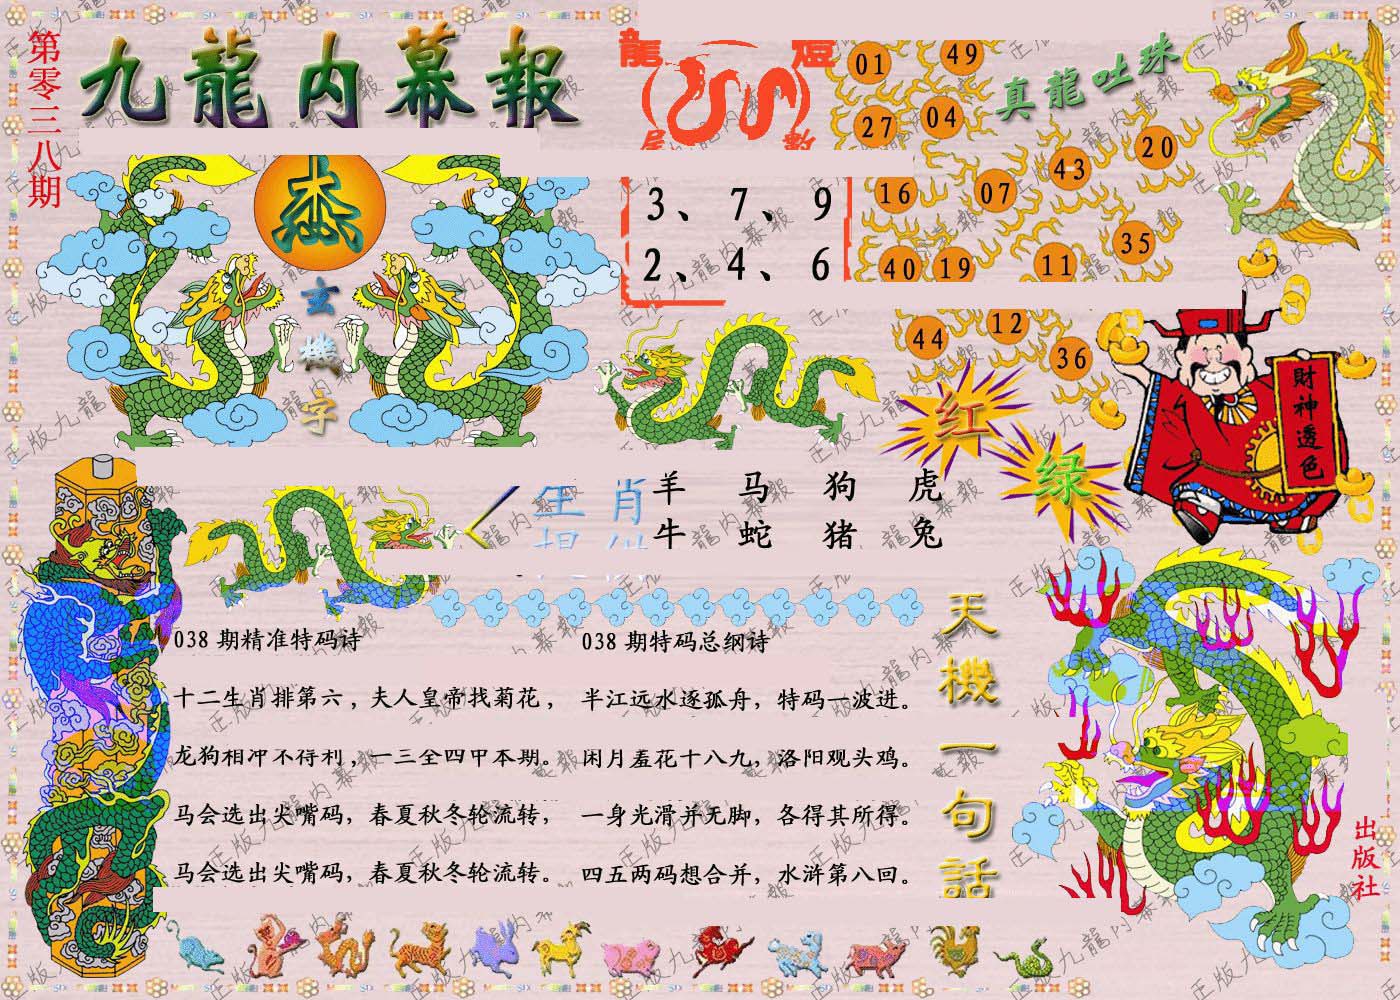 第零三八期
九龍内幕報
龍 燈
尾 數
3、7、9
2、4、6
真龍吐珠
01 49
27 04
43 20
16 07
35
40 19 11
44 12
36
玄機字
财神透色
红
绿
生肖
羊 马 狗 虎
牛 蛇 猪 兔
038 期精准特码诗
十二生肖排第六，夫人皇帝找菊花，
龙狗相冲不得利，一三全四甲本期。
马会选出尖嘴码，春夏秋冬轮流转，
马会选出尖嘴码，春夏秋冬轮流转。
038 期特码总纲诗
半江远水逐孤舟，特码一波进。
闲月羞花十八九，洛阳观头鸡。
一身光滑并无脚，各得其所得。
四五两码想合并，水浒第八回。
天機一句話
出版社
正版九龍内幕報